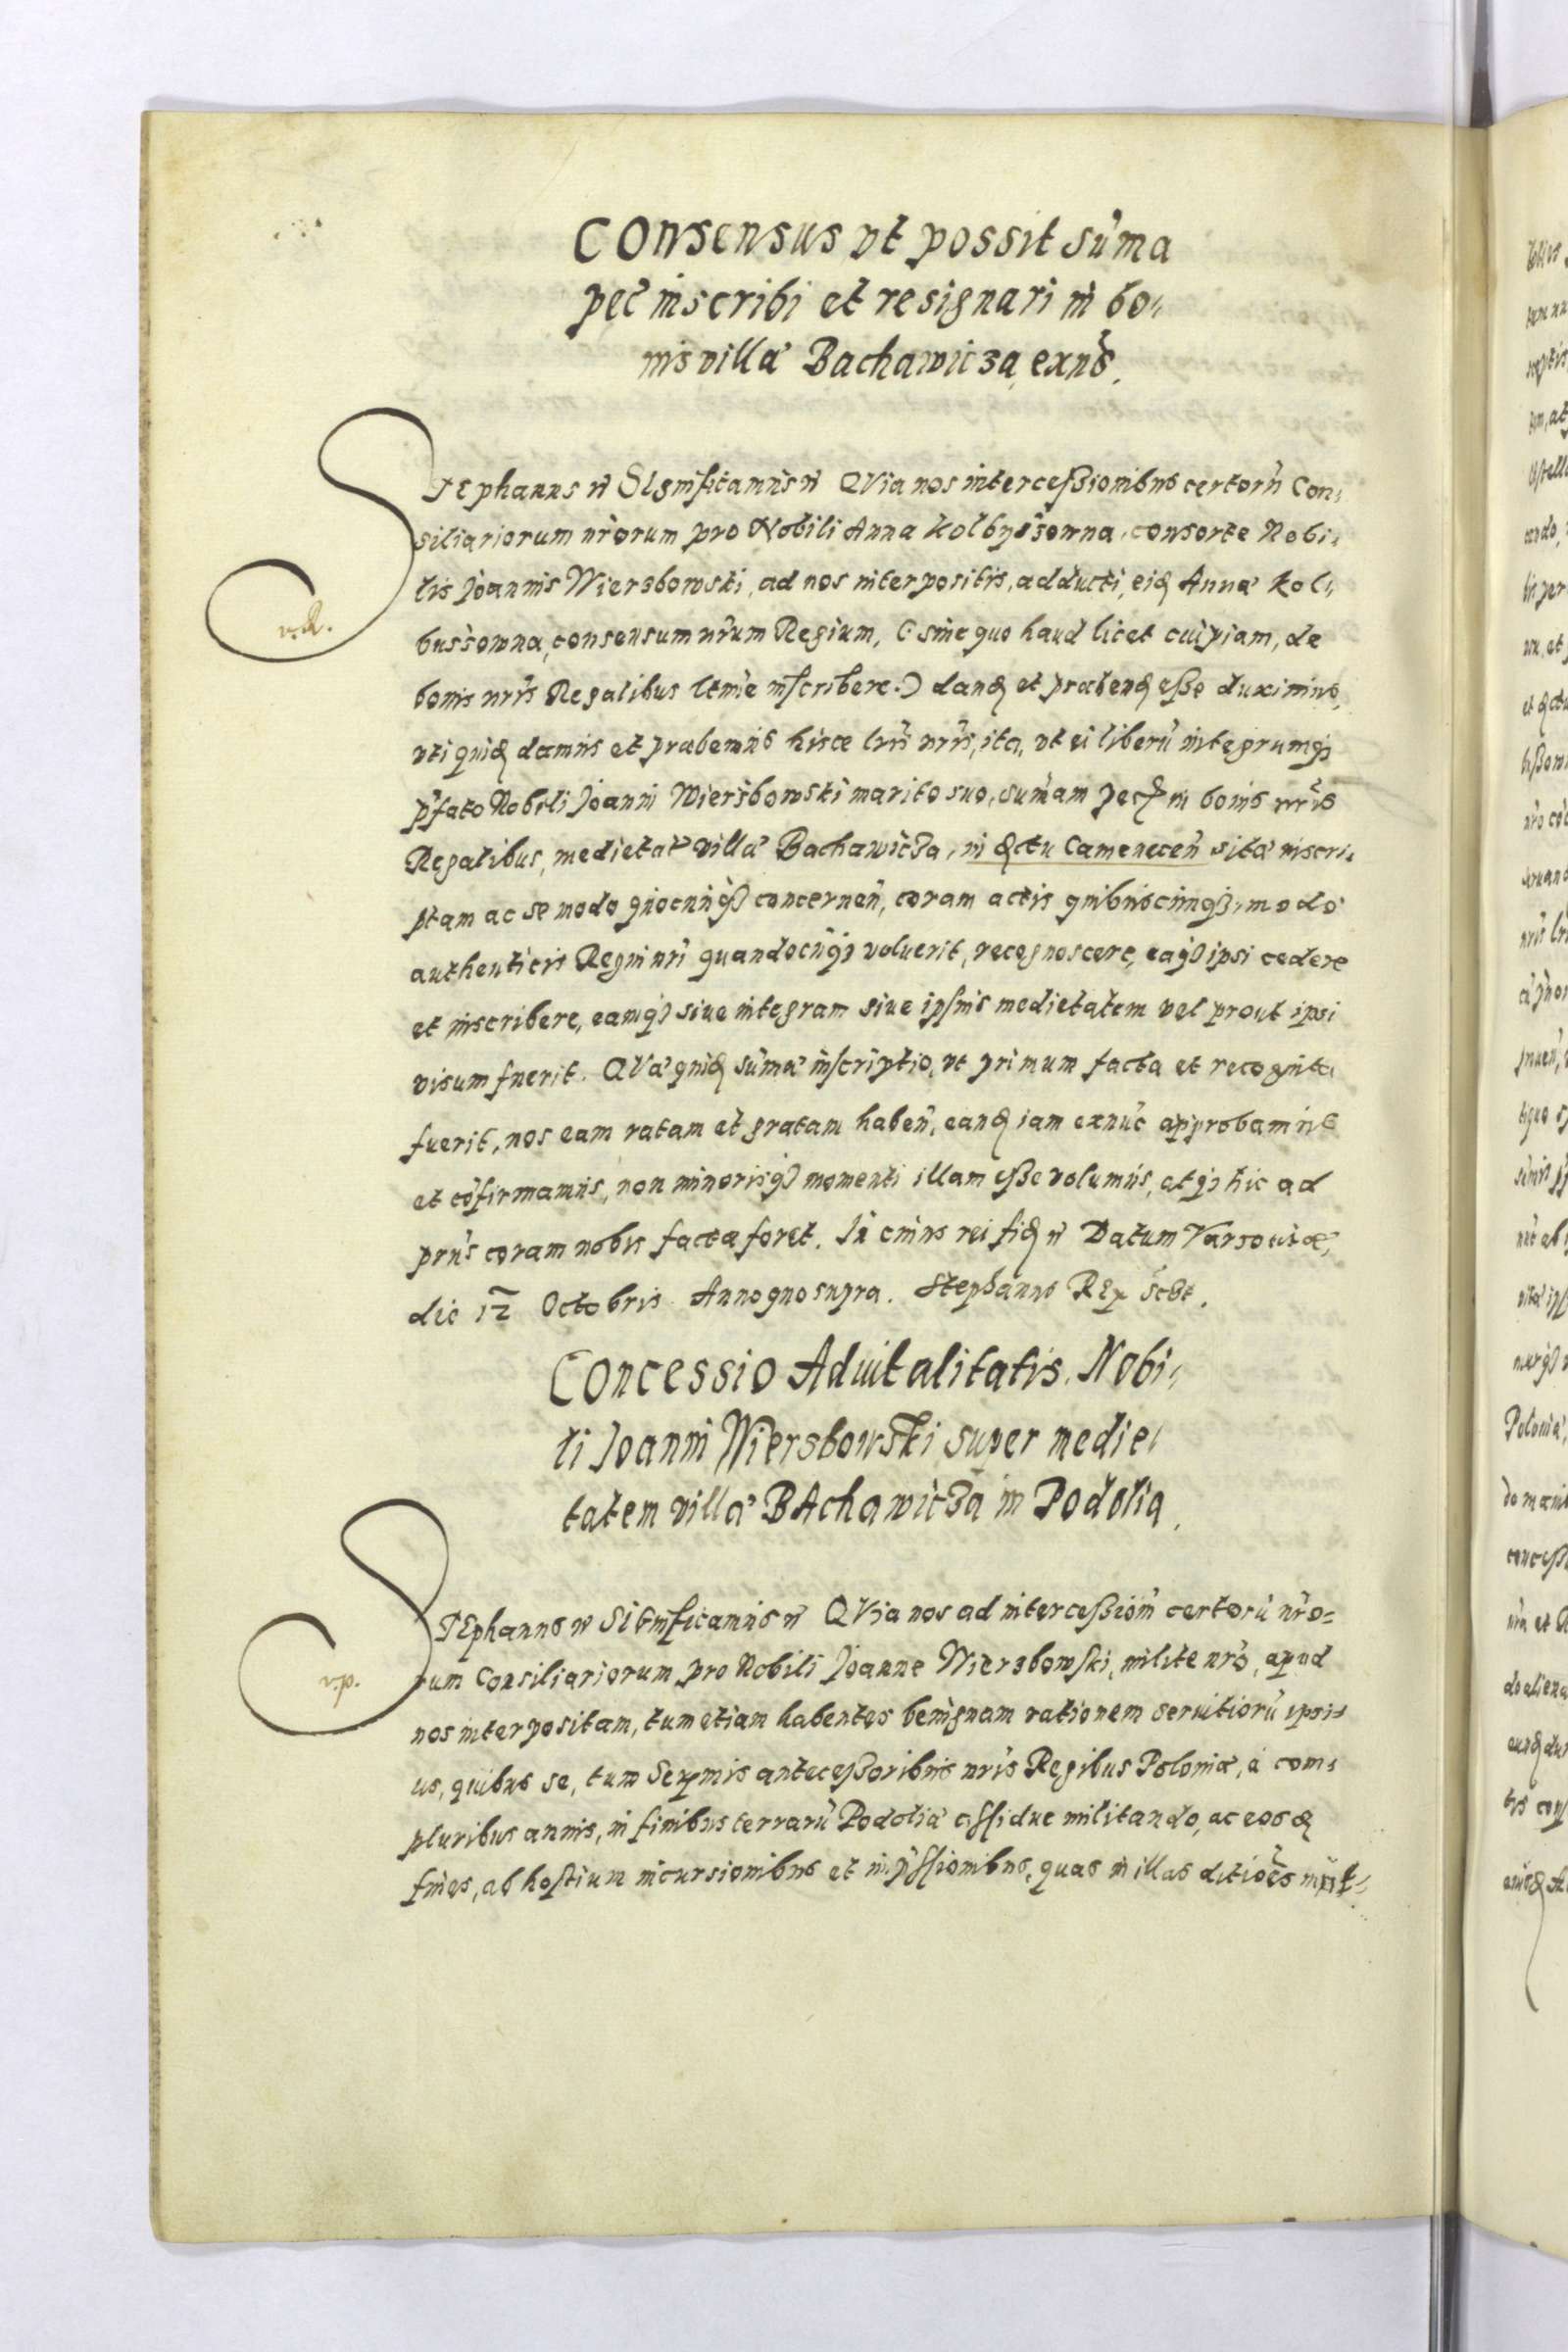 Consensus vt possit sum̃a
pec̃ inscribi et resignari in bo-
nis villæ Bachawicza exñs.
Stephanus etc̃ Significamus etc̃ QVia nos intercessionibus certorũ Con-
siliariorum nr̃orum pro Nobili Anna Kolbyszowna, consorte Nobi-
lis Joannis Wierzbowski, ad nos interpositis, adducti, eidẽ Annæ Kol-
buszowna, consensum nr̃um Regium, (sine quo haud licet cuipiam, de
bonis nr̃is Regalibus ltm̃e inscribere.) dand et præbend esse duximus,
vti quidẽ damus et præbemus hisce lr̃is nr̃is, ita, vt ei liberũ integrumq3
p̃fato Nobili Joanni Wierzbowski marito suo, sum̃am pec̃ in bonis nr̃is
Regalibus, medietat villæ Bachawicza, in dctu Camenecen̄ sitæ inscri-
ptam ac se modo quocunq3 concernen̄, coram actis quibuscunq3, modo
authenticis Regni nr̃i quandocũq3 voluerit, recognoscere, eaq3 ipsi cedere
et inscribere, eamq3 siue integram siue ipsius medietatem vel prout ipsi
visum fuerit. QVæ quidẽ sum̃æ inscriptio, vt primum facta et recognita
fuerit, nos eam ratam et gratam haben̄, eandẽ iam exnũc approbamus
et cõfirmamus, non minorisq3 momenti illam esse volumus, atq3 hic ad
prñs coram nobis facta foret. In cuius rei fidẽ etc̃ Datum Varsouiæ,
die 12 Octobris Anno quo supra. Stephanus Rex sc̃bt.
v.R.
Concessio Aduitalitatis Nobi-
li Joanni Wierzbowski super medie-
tatem villæ BAchawicza in Podolia.
STEphanus etc̃ SIGnificamus etc̃ QVia nos ad intercession̄ certorũ nr̃o-
rum Consiliariorum pro Nobili Joanne Wierzbowski, milite nr̃o, apud
nos interpositam, tum etiam habentes benignam rationem seruitiorũ ipsi-
us, quibus se, tum Serẽmis antecessoribus nr̃is Regibus Poloniæ, à com-
pluribus annis, in finibus terrarũ Podoliæ assidue militando, ac eosdẽ
fines, ab hostium incursionibus et imp̃ssionibus, quas in illas ditiões
v.p.